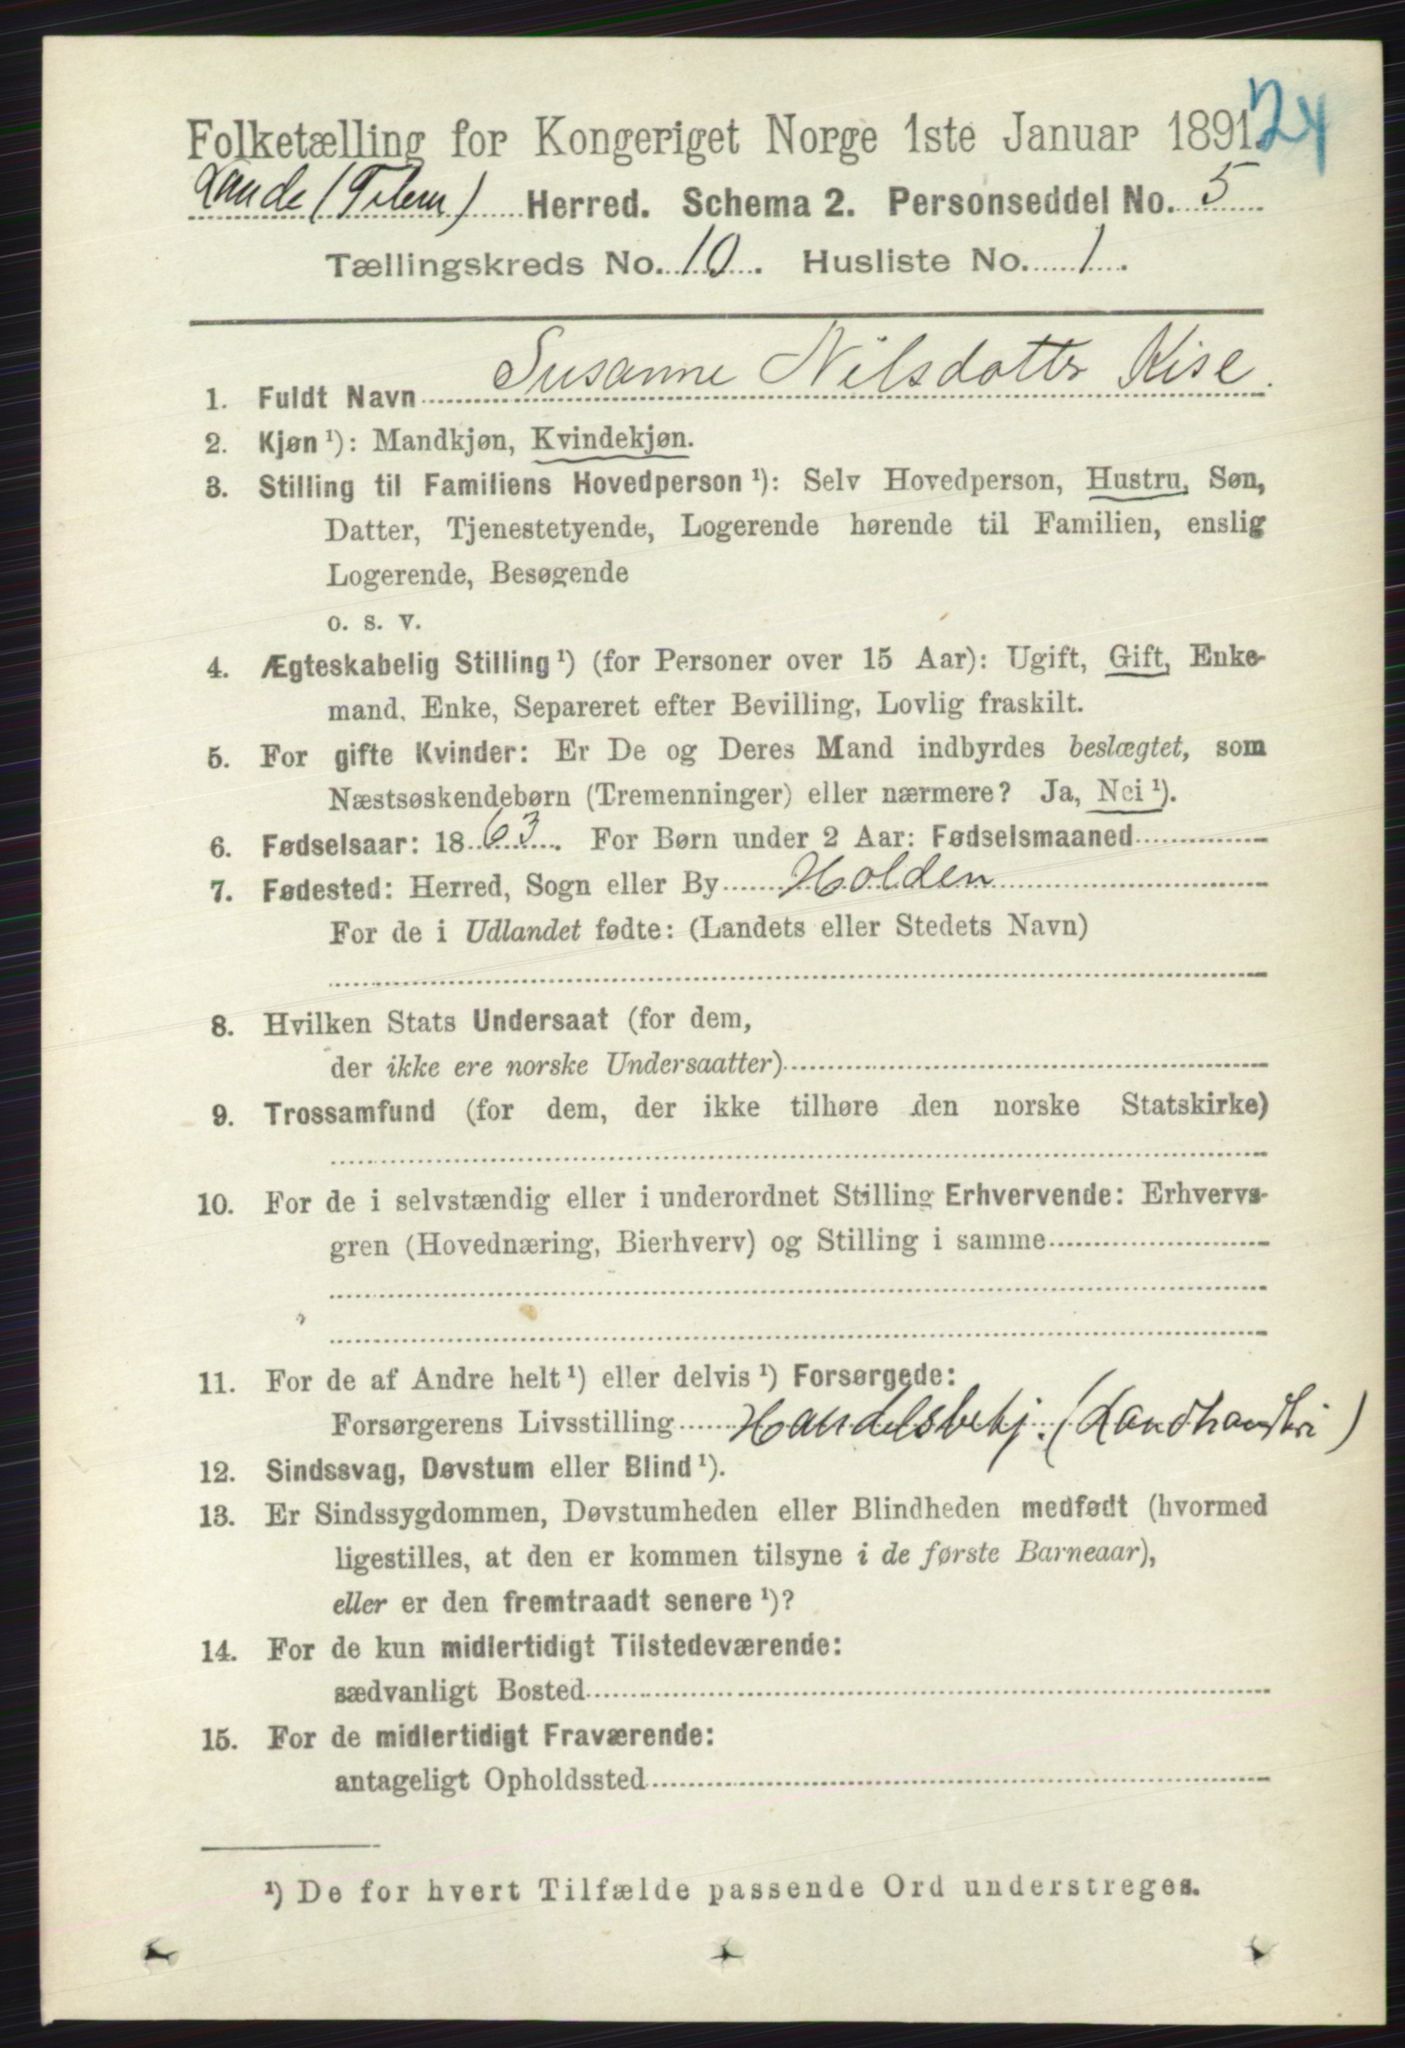 24
Folketælling for Kongeriget Norge 1ste Januar 1891.
Herred. Schema 2. Personseddel No. 5
Tællingskreds No. 10. Husliste No. 1.
1. Fuldt Navn Susanne Nilsdotter Kise.
2. Kjøn ¹): Mandkjøn, Kvindekjøn.
3. Stilling til Familiens Hovedperson ¹): Selv Hovedperson, Hustru, Søn,
Datter, Tjenestetyende, Logerende hørende til Familien, enslig
Logerende, Besøgende
o. s. v.
4. Ægteskabelig Stilling ¹) (for Personer over 15 Aar): Ugift, Gift, Enke-
mand, Enke, Separeret efter Bevilling, Lovlig fraskilt.
5. For gifte Kvinder: Er De og Deres Mand indbyrdes beslægtet, som
Næstsøskendebørn (Tremenninger) eller nærmere? Ja, Nei ¹).
6. Fødselsaar: 1863. For Børn under 2 Aar: Fødselsmaaned
7. Fødested: Herred, Sogn eller By Holden
For de i Udlandet fødte: (Landets eller Stedets Navn)
8. Hvilken Stats Undersaat (for dem,
der ikke ere norske Undersaatter)
9. Trossamfund (for dem, der ikke tilhøre den norske Statskirke)
10. For de i selvstændig eller i underordnet Stilling Erhvervende: Erhvervs-
gren (Hovednæring, Bierhverv) og Stilling i samme
11. For de af Andre helt ¹) eller delvis ¹) Forsørgede:
Forsørgerens Livsstilling Handelsbetj. (Landhandleri)
12. Sindssvag, Døvstum eller Blind ¹).
13. Er Sindssygdommen, Døvstumheden eller Blindheden medfødt (hvormed
ligestilles, at den er kommen tilsyne i de første Barneaar),
eller er den fremtraadt senere ¹)?
14. For de kun midlertidigt Tilstedeværende:
sædvanligt Bosted
15. For de midlertidigt Fraværende:
antageligt Opholdssted
¹) De for hvert Tilfælde passende Ord understreges.